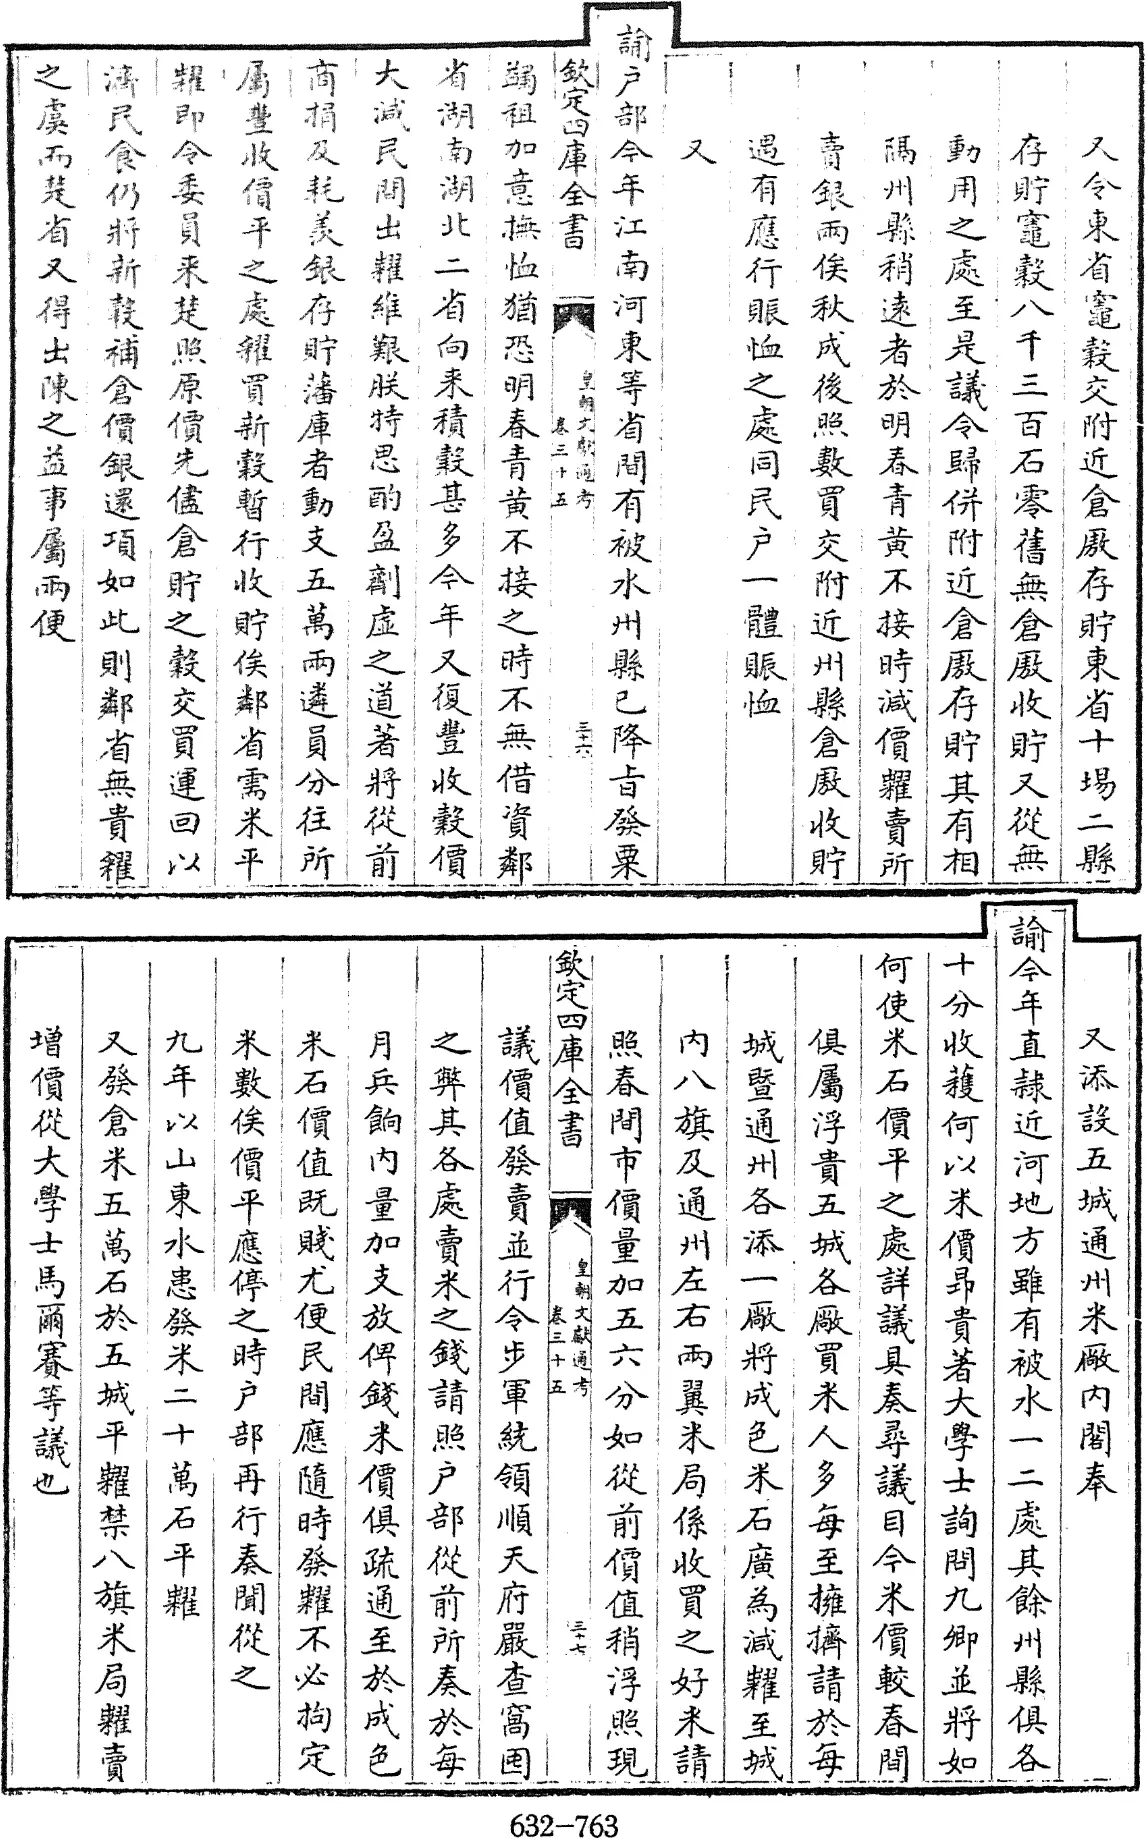 又令東省竈穀交附近倉厫存貯東省十場二縣
存貯竈穀八千三百石零舊無倉厫收貯又從無
動用之處至是議令歸併附近倉厫存貯其有相
隔州縣稍遠者於明春青黄不接時減價糶賣所
賣銀兩俟秋成後照數買交附近州縣倉厫收貯
遇有應行賑恤之處同民户一體賑恤
又
諭户部今年江南河東等省間有被水州縣已降旨發粟
欽定四庫全書
皇朝文獻通考
卷三十五
三十六
蠲租加意撫恤猶恐明春青黄不接之時不無借資鄰
省湖南湖北二省向来積穀甚多今年又復豐收穀價
大減民間出糶維艱朕特思酌盈劑虚之道著將從前
商捐及耗羨銀存貯藩庫者動支五萬兩遴員分往所
屬豐收價平之處糴買新穀暫行收貯俟鄰省需米平
糶即令委員来楚照原價先儘倉貯之穀交買運回以
濟民食仍將新穀補倉價銀還項如此則鄰省無貴糴
之虞而楚省又得出陳之益事屬兩便
又添設五城通州米廠内閣奉
諭今年直隷近河地方雖有被水一二處其餘州縣俱各
十分收穫何以米價昻貴著大學士詢問九卿並將如
何使米石價平之處詳議具奏尋議目今米價較春間
俱屬浮貴五城各廠買米人多每至擁擠請於每
城暨通州各添一廠將成色米石廣為減糶至城
内八旗及通州左右兩翼米局係收買之好米請
照春間市價量加五六分如從前價值稍浮照現
欽定四庫全書
皇朝文獻通考
卷三十五
三十七
議價值發賣並行令步軍統領順天府嚴查窩囤
之弊其各處賣米之錢請照户部從前所奏於每
月兵餉内量加支放俾錢米價俱疏通至於成色
米石價值既賤尤便民間應隨時發糶不必拘定
米數俟價平應停之時户部再行奏聞從之
九年以山東水患發米二十萬石平糶
又發倉米五萬石於五城平糶禁八旗米局糶賣
增價從大學士馬爾賽等議也
632-763